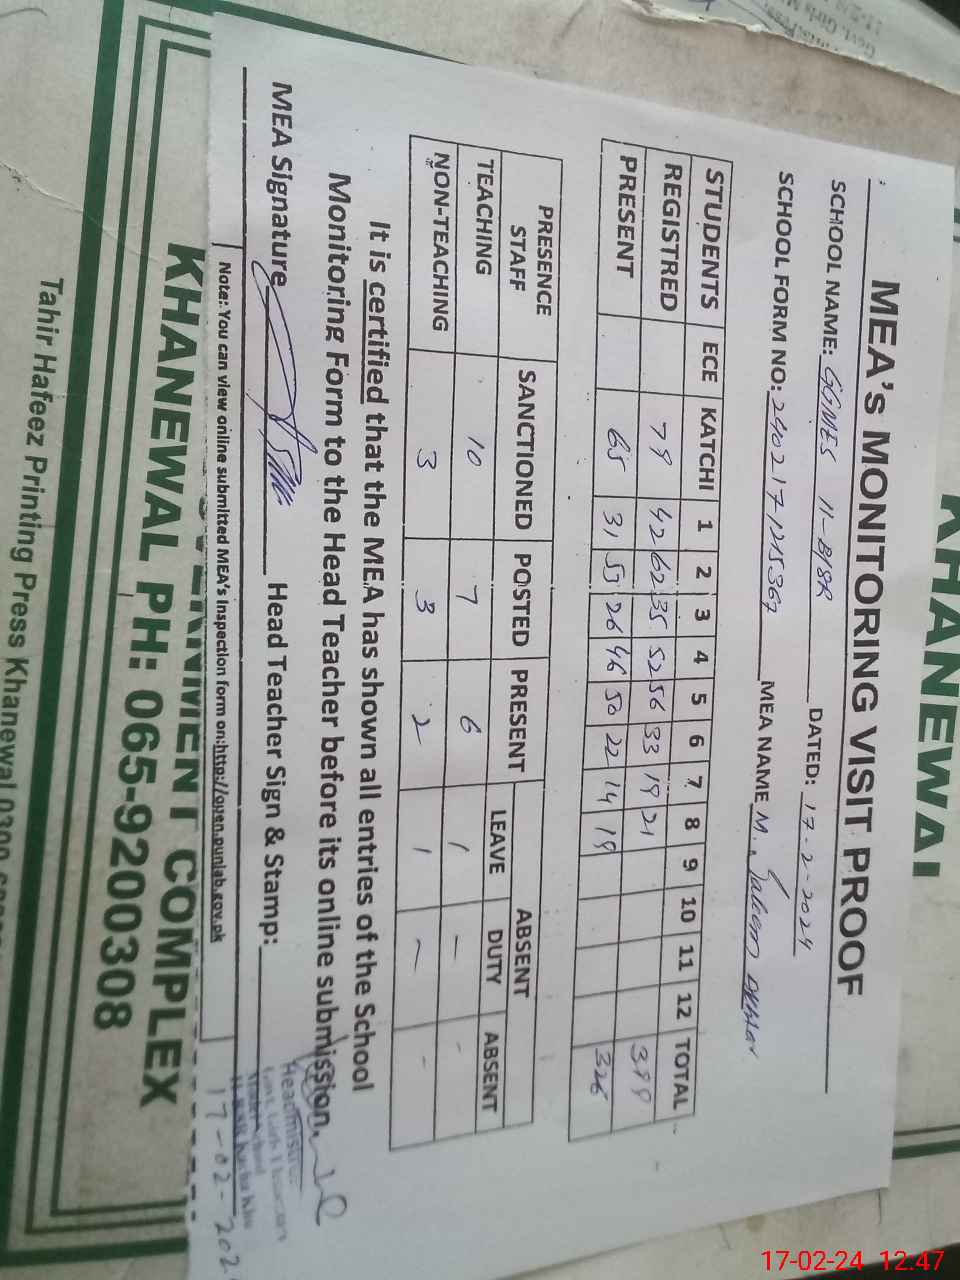 KHANEWAL
MEA's MONITORING VISIT PROOF
SCHOOL NAME: GGMES 11-B/8R DATED: 17-2-2024
SCHOOL FORM NO: 240217 1215367 MEA NAME M. Saleem Akhtar
STUDENTS ECE KATCHI 1 2 3 4 5 6 7 8 9 10 11 12 TOTAL
REGISTRED 79 42 62 35 52 56 33 19 21 399
PRESENT 65 31 53 26 46 50 22 14 19 326
PRESENCE STAFF SANCTIONED POSTED PRESENT ABSENT
LEAVE DUTY ABSENT
TEACHING 10 7 6 1 - -
NON-TEACHING 3 3 2 1 - -
It is certified that the MEA has shown all entries of the School
Monitoring Form to the Head Teacher before its online submission.
MEA Signature Head Teacher Sign & Stamp:
Headmistress
17-02-202
Note: You can view online submitted MEA's Inspection form on:http://open.punjab.gov.pk
KHANEWAL PH: 065-9200308
Tahir Hafeez Printing Press Khanewal 0300
17-02-24 12:47